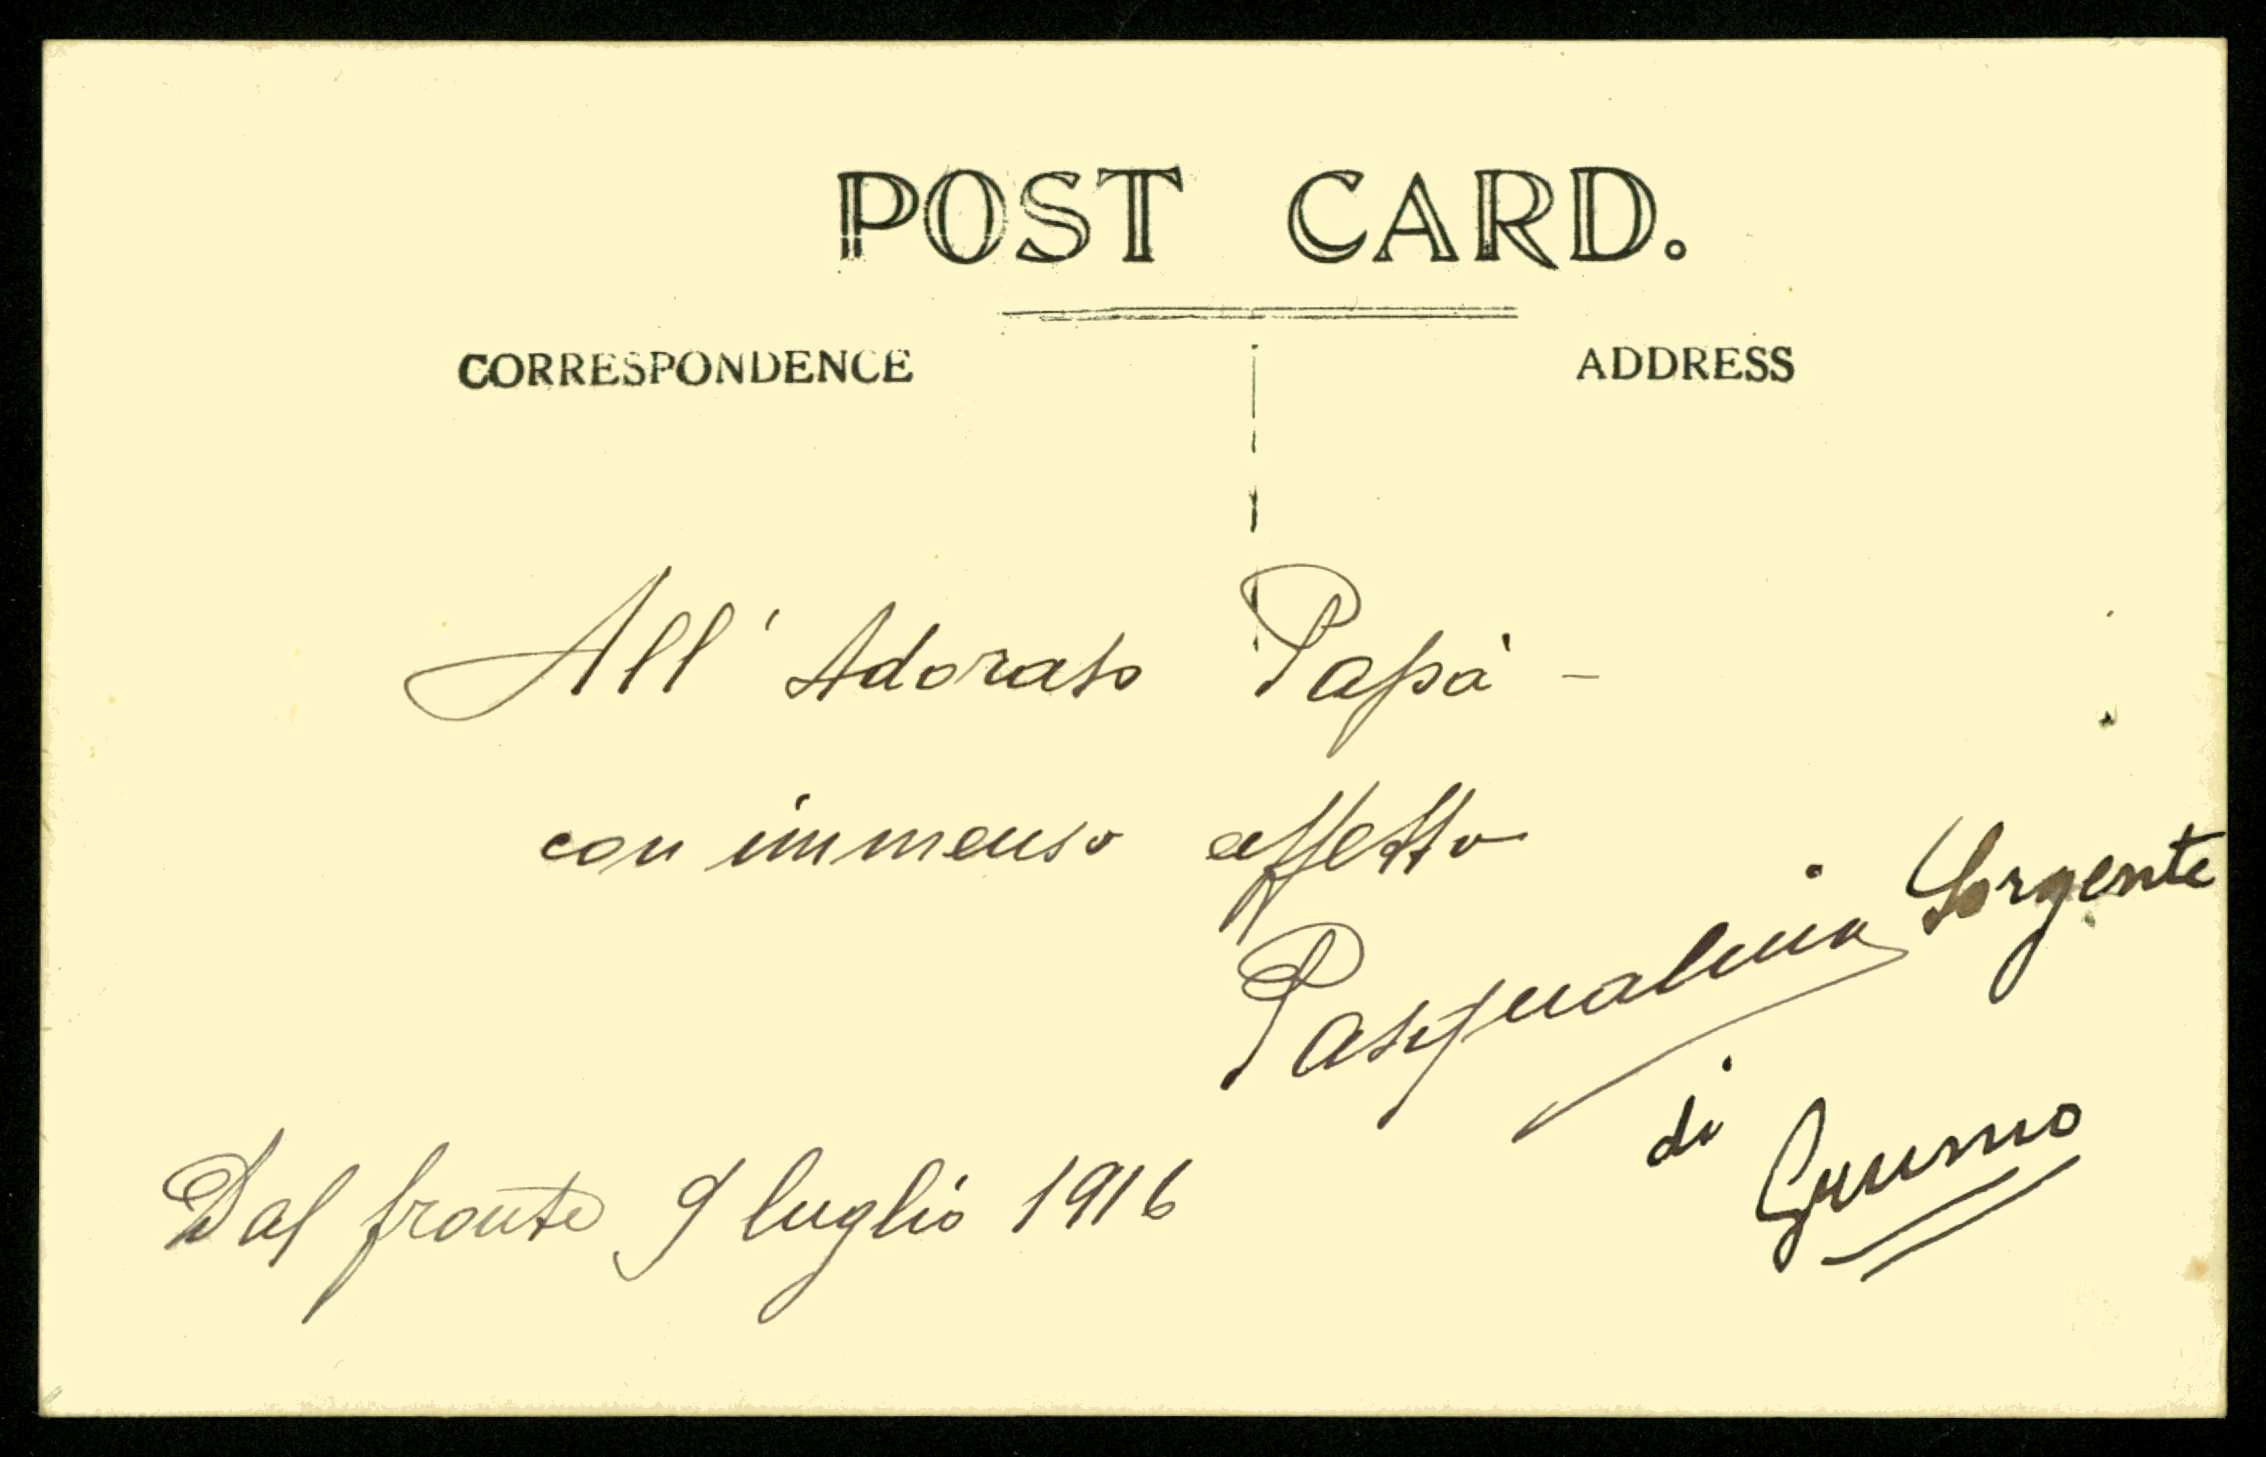 POST CARD.
CORRESPONDENCE
ADDRESS
All' Adorato Papà -
con immenso affetto
Pasqualino Sorgente
di Grumo
Dal fronte 9 luglio 1916